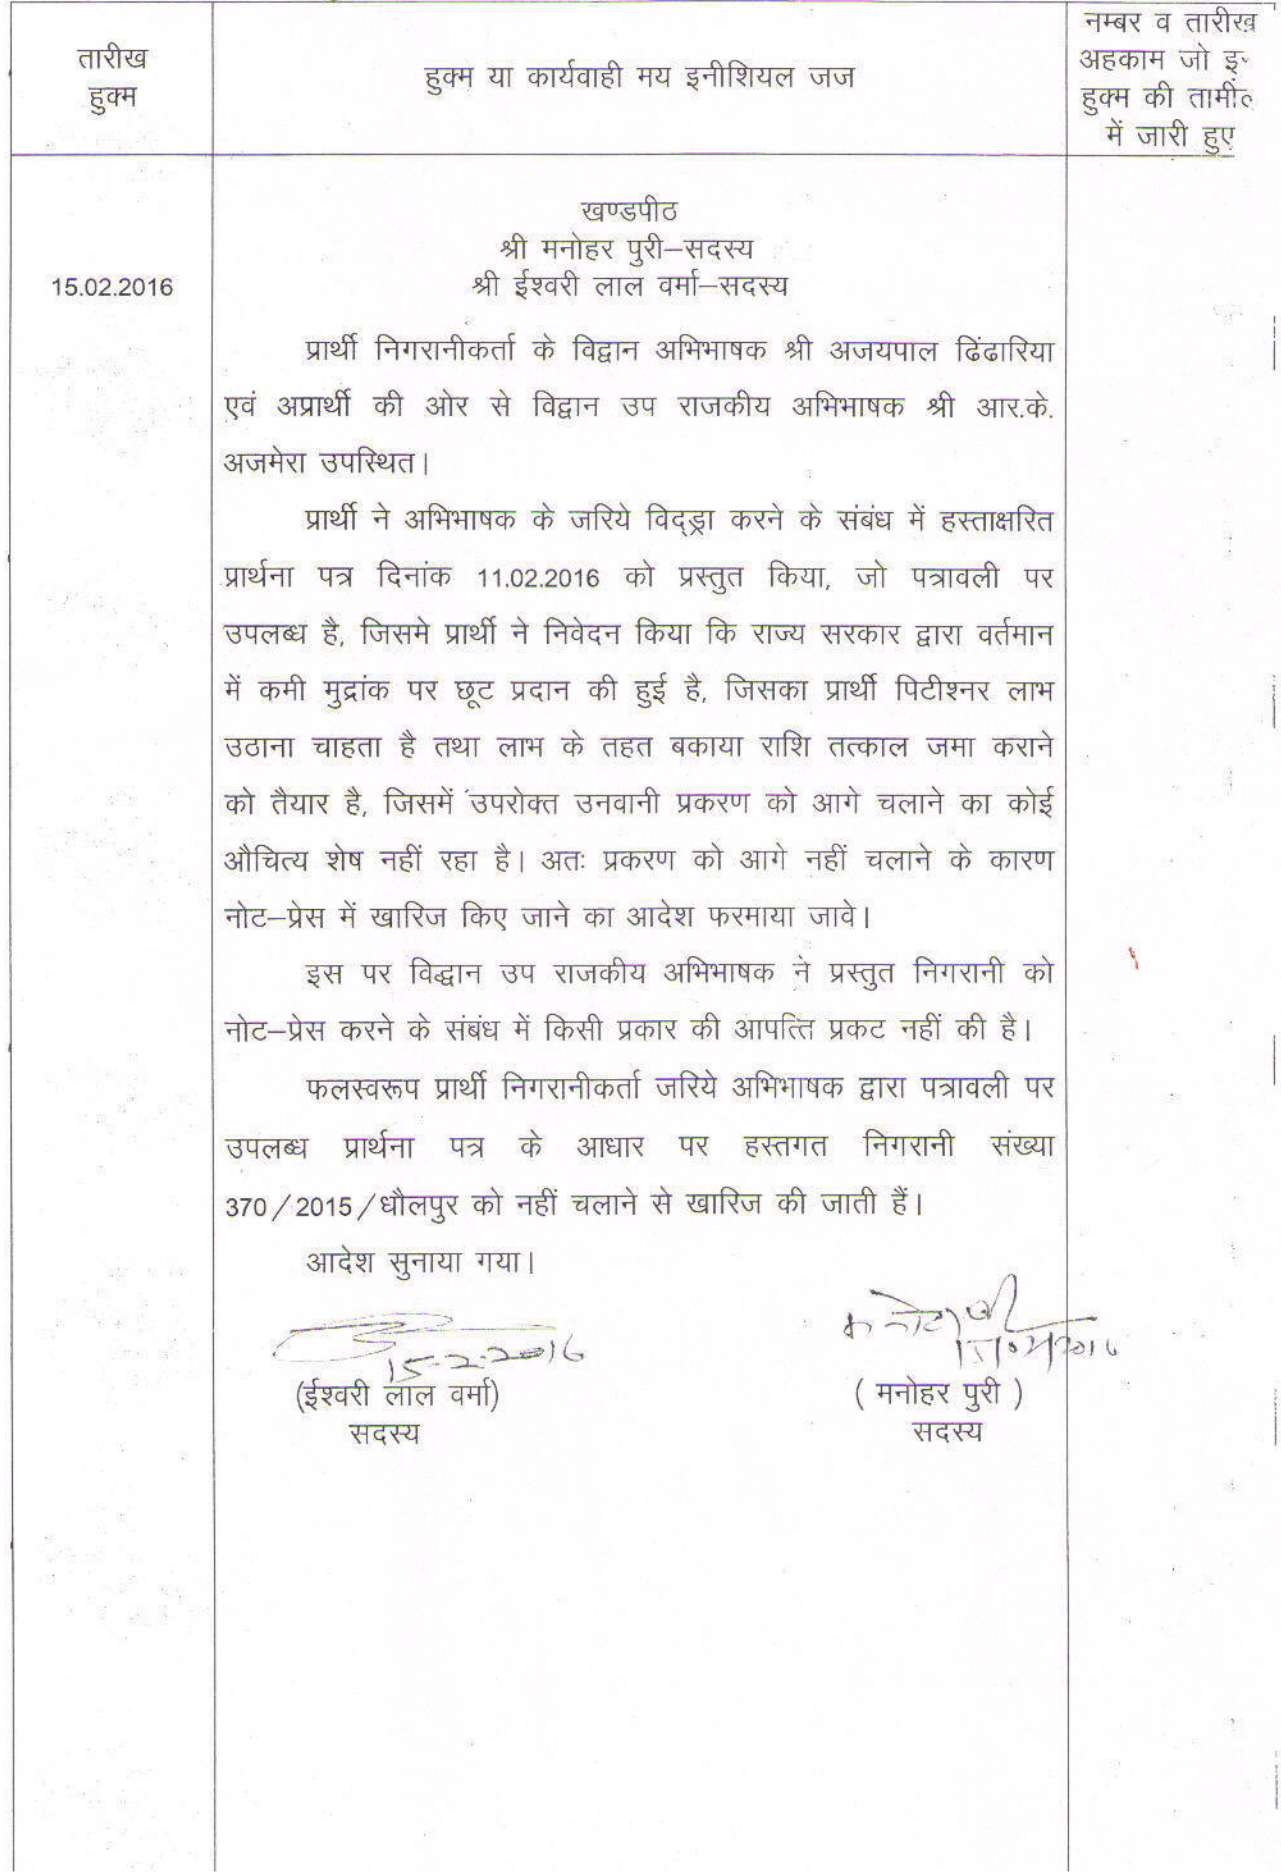 तारीख
हुक्म
हुक्म या कार्यवाही मय इनीशियल जज
नम्बर व तारीख
अहकाम जो
हुक्म की
में जारी हुए
खण्डपीठ
श्री मनोहर पुरी–सदस्य
15.02.2016
श्री ईश्वरी लाल वर्मा–सदस्य
प्रार्थी निगरानीकर्ता के विद्वान अभिभाषक श्री अजयपाल ढिंढारिया
एवं अप्रार्थी की ओर से विद्वान उप राजकीय अभिभाषक श्री आर.के.
अजमेरा उपस्थित।
प्रार्थी ने अभिभाषक के जरिये विद्ड्रा करने के संबंध में हस्ताक्षरित
प्रार्थना पत्र दिनांक 11.02.2016 को प्रस्तुत किया, जो पत्रावली पर
उपलब्ध है, जिसमे प्रार्थी ने निवेदन किया कि राज्य सरकार द्वारा वर्तमान
में कमी मुद्रांक पर छूट प्रदान की हुई है, जिसका प्रार्थी पिटीश्नर लाभ
उठाना चाहता है तथा लाभ के तहत बकाया राशि तत्काल जमा कराने
को तैयार है, जिसमें उपरोक्त उनवानी प्रकरण को आगे चलाने का कोई
औचित्य शेष नहीं रहा है। अतः प्रकरण को आगे नहीं चलाने के कारण
नोट–प्रेस में खारिज किए जाने का आदेश फरमाया जावे।
इस पर विद्धान उप राजकीय अभिभाषक ने प्रस्तुत निगरानी को
नोट–प्रेस करने के संबंध में किसी प्रकार की आपत्ति प्रकट नहीं की है।
फलस्वरूप प्रार्थी निगरानीकर्ता जरिये अभिभाषक द्वारा पत्रावली पर
उपलब्ध प्रार्थना पत्र के आधार पर हस्तगत निगरानी संख्या
370/2015/धौलपुर को नहीं चलाने से खारिज की जाती हैं।
आदेश सुनाया गया।
15-2-2016
(ईश्वरी लाल वर्मा)
( मनोहर पुरी )
सदस्य
सदस्य